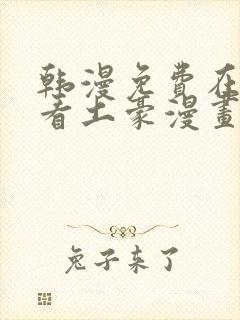 韩漫免費在
看土豪漫畫
兔子来了